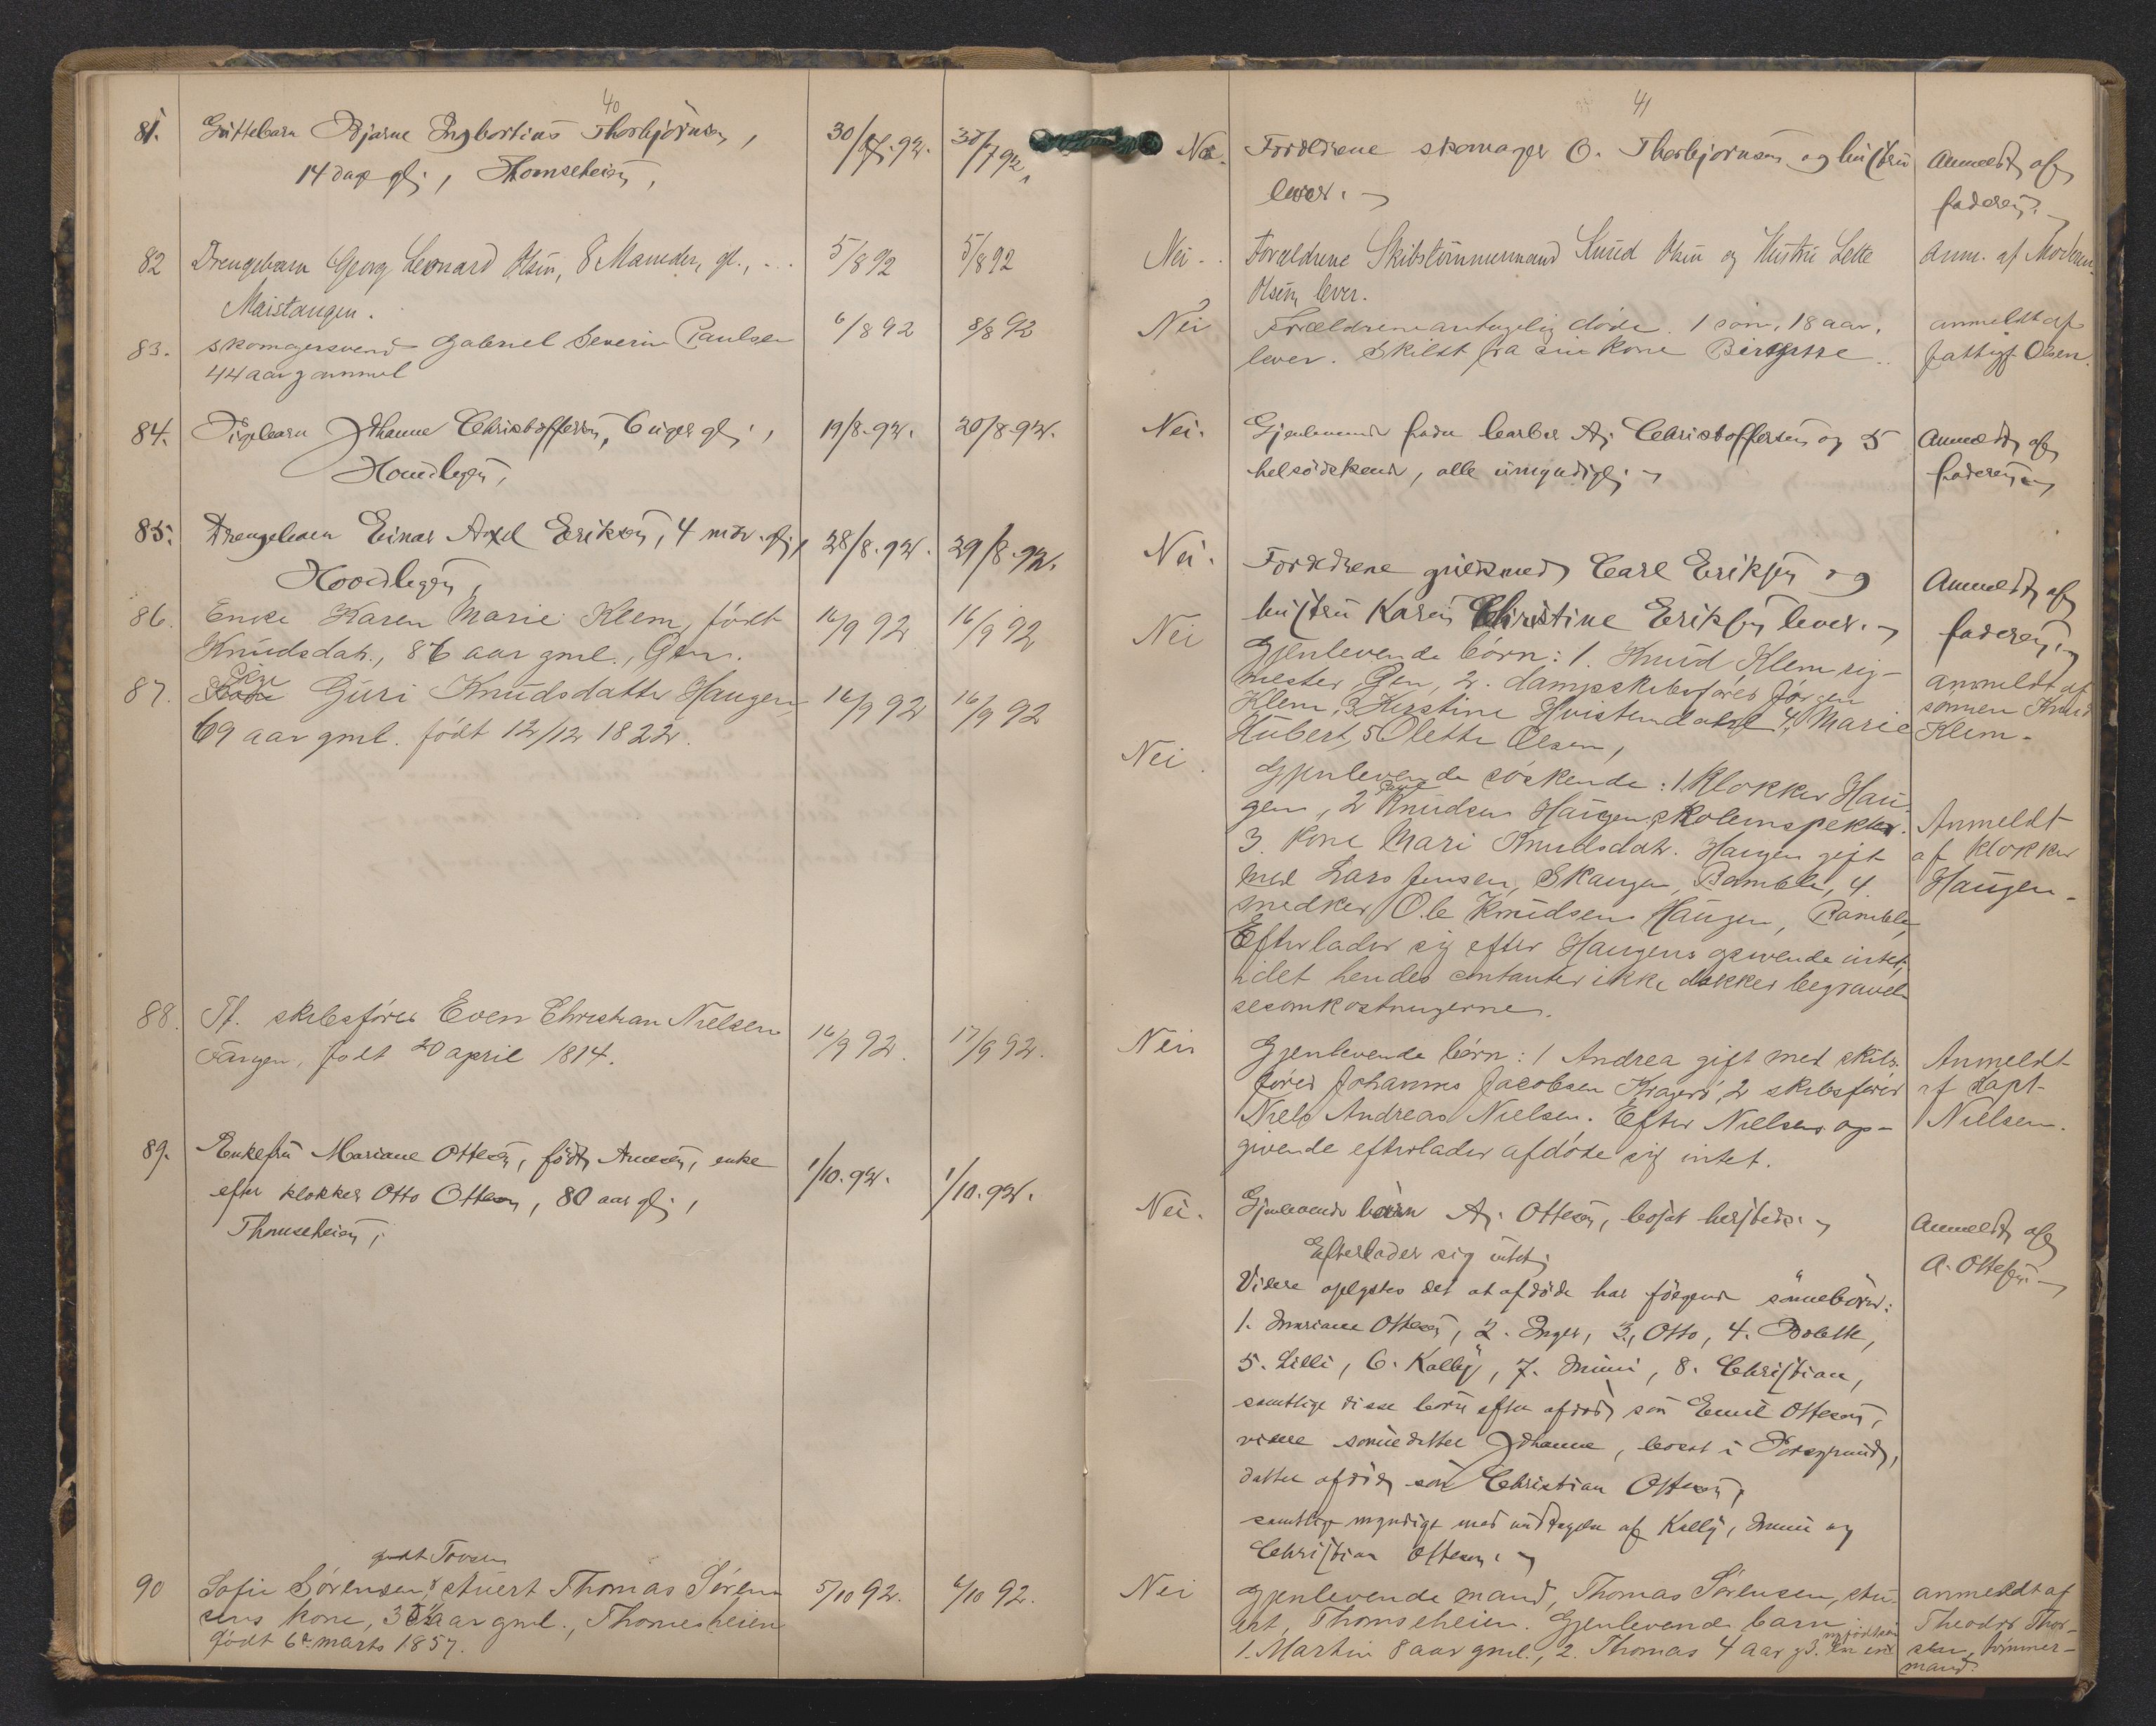 40
81. Guttebarn Bjarne Ingbertius Thorbjörnsen,
14 dage gl., Thomseheien,
30/7.92. 30/7 92,
82 Drengebarn Georg Leonard Olsen, 8 Maaneder, gl.,
Maistangen.
5/8 92 5/8 92
83. skomagersvend Gabriel Severin Paulsen
44 aar gammel
6/8 92 8/8 92
84. Pigebarn Johanne Christoffersen, 6 uger gl.,
19/8.92. 20/8.92.
85. Drengebarn Einar Axel Eriksen, 4 mdr. gl.,
28/8.92. 29/8.92.
86. Enke Karen Marie Klem, født
Knudsdatr., 86 aar gml., Gen.
16/9 92 16/9 92
87. Pige Guri Knudsdatter Haugen,
69 aar gml. født 12/12 1822.
16/9 92 16/9 92
88. Ff. skibsfører Even Christian Nielsen
Tangen, født 20 april 1814.
16/9 92. 17/9 92.
89. Enkefru Mariane Ottesen, født Arnesen, enke
efter klokker Otto Ottesen, 80 aar gl.,
Thomseheien,
1/10.92. 1/10.92.
90 Sofie Sörensen, stuert Thomas Sören-
sens kone, aar gml., Thomesheien
født 6te marts 1857.
5/10 92. 6/10 92.
41
Nei. Forældrene skomager O. Thorbjørnsen og hustru
lever.
Anmeldt af
faderen.
Nei. Forældrene Skibstömmermand Knud Olsen og Hustru Lette
Olsen lever.
Anm. af Moderen.
Nei Forældrene antagelig døde. 1 sön, 18 aar,
lever. Skildt fra sin kone Birgitte
anmeldt af
fattigf. Olsen.
Nei. Gjenlevende fader barber A. Christoffersen og 5
helsödskend, alle umyndige.
Anmeldt af
faderen
Nei. Forældrene Carl Eriksen og
hustru Karen Christine Eriksen lever.
Anmeldt af
faderen
Nei Gjenlevende børn: 1. Knud Klem rig-
mester, Gen, 2. dampskibsfører Jörgen
Klem, 3. Kirstine Hvistendahl 4, Marie
Hubert, 5 Olette Olsen,
anmeldt af
sønnen Knud
Klem.
Nei. Gjenlevende söskende: 1. Klokker Hau-
gen, 2 Knudsen Haugen, skoleinspektør.
3. kone Mari Knudsdatr. Haugen gift
med Lars Jensen, Skaugen, Bamble, 4.
snedker Ole Knudsen Haugen, Bamble,
Efterlader sig efter Haugens opgivende intet,
idet hendes contanter ikke dækker begravel-
sesomkostningerne.
Anmeldt
af klokker
Haugen.
Nei Gjenlevende børn: 1 Andrea gift med skibs-
fører Johannes Jacobsen Kragerö, 2 skibsfører
Niels Andreas Nielsen. Efter Nielsens op-
givende efterlader afdöde sig intet.
Anmeldt
af Kapt.
Nielsen.
Nei. Gjenlevende barn A. Ottesen, bosat hersteds.
Efterlader sig intet.
Videre oplystes det at afdöde har følgende sönnebörn:
1. Mariane Ottesen, 2. Inger, 3, Otto, 4. Bolette,
5. Lilli, 6. Kally, 7. Mimi, 8. Christian,
samtlige disse börn efter afdöd sön Emil Ottesen,
videre sönnedatter Johanne, bosat i Porsgrund,
datter afdöd sön Christian Ottesen,
samtlige myndige med undtagelse af Kally, Mimi og
Christian Ottesen.
Anmeldt af
A. Ottesen
Nei Gjenlevende mand, Thomas Sørensen, stu-
ert, Thomseheien. Gjenlevende barn
1. Martin 8 aar gml., 2. Thomas 4 aar
anmeldt af
Theodor Thor-
sen, tømmer-
mand.